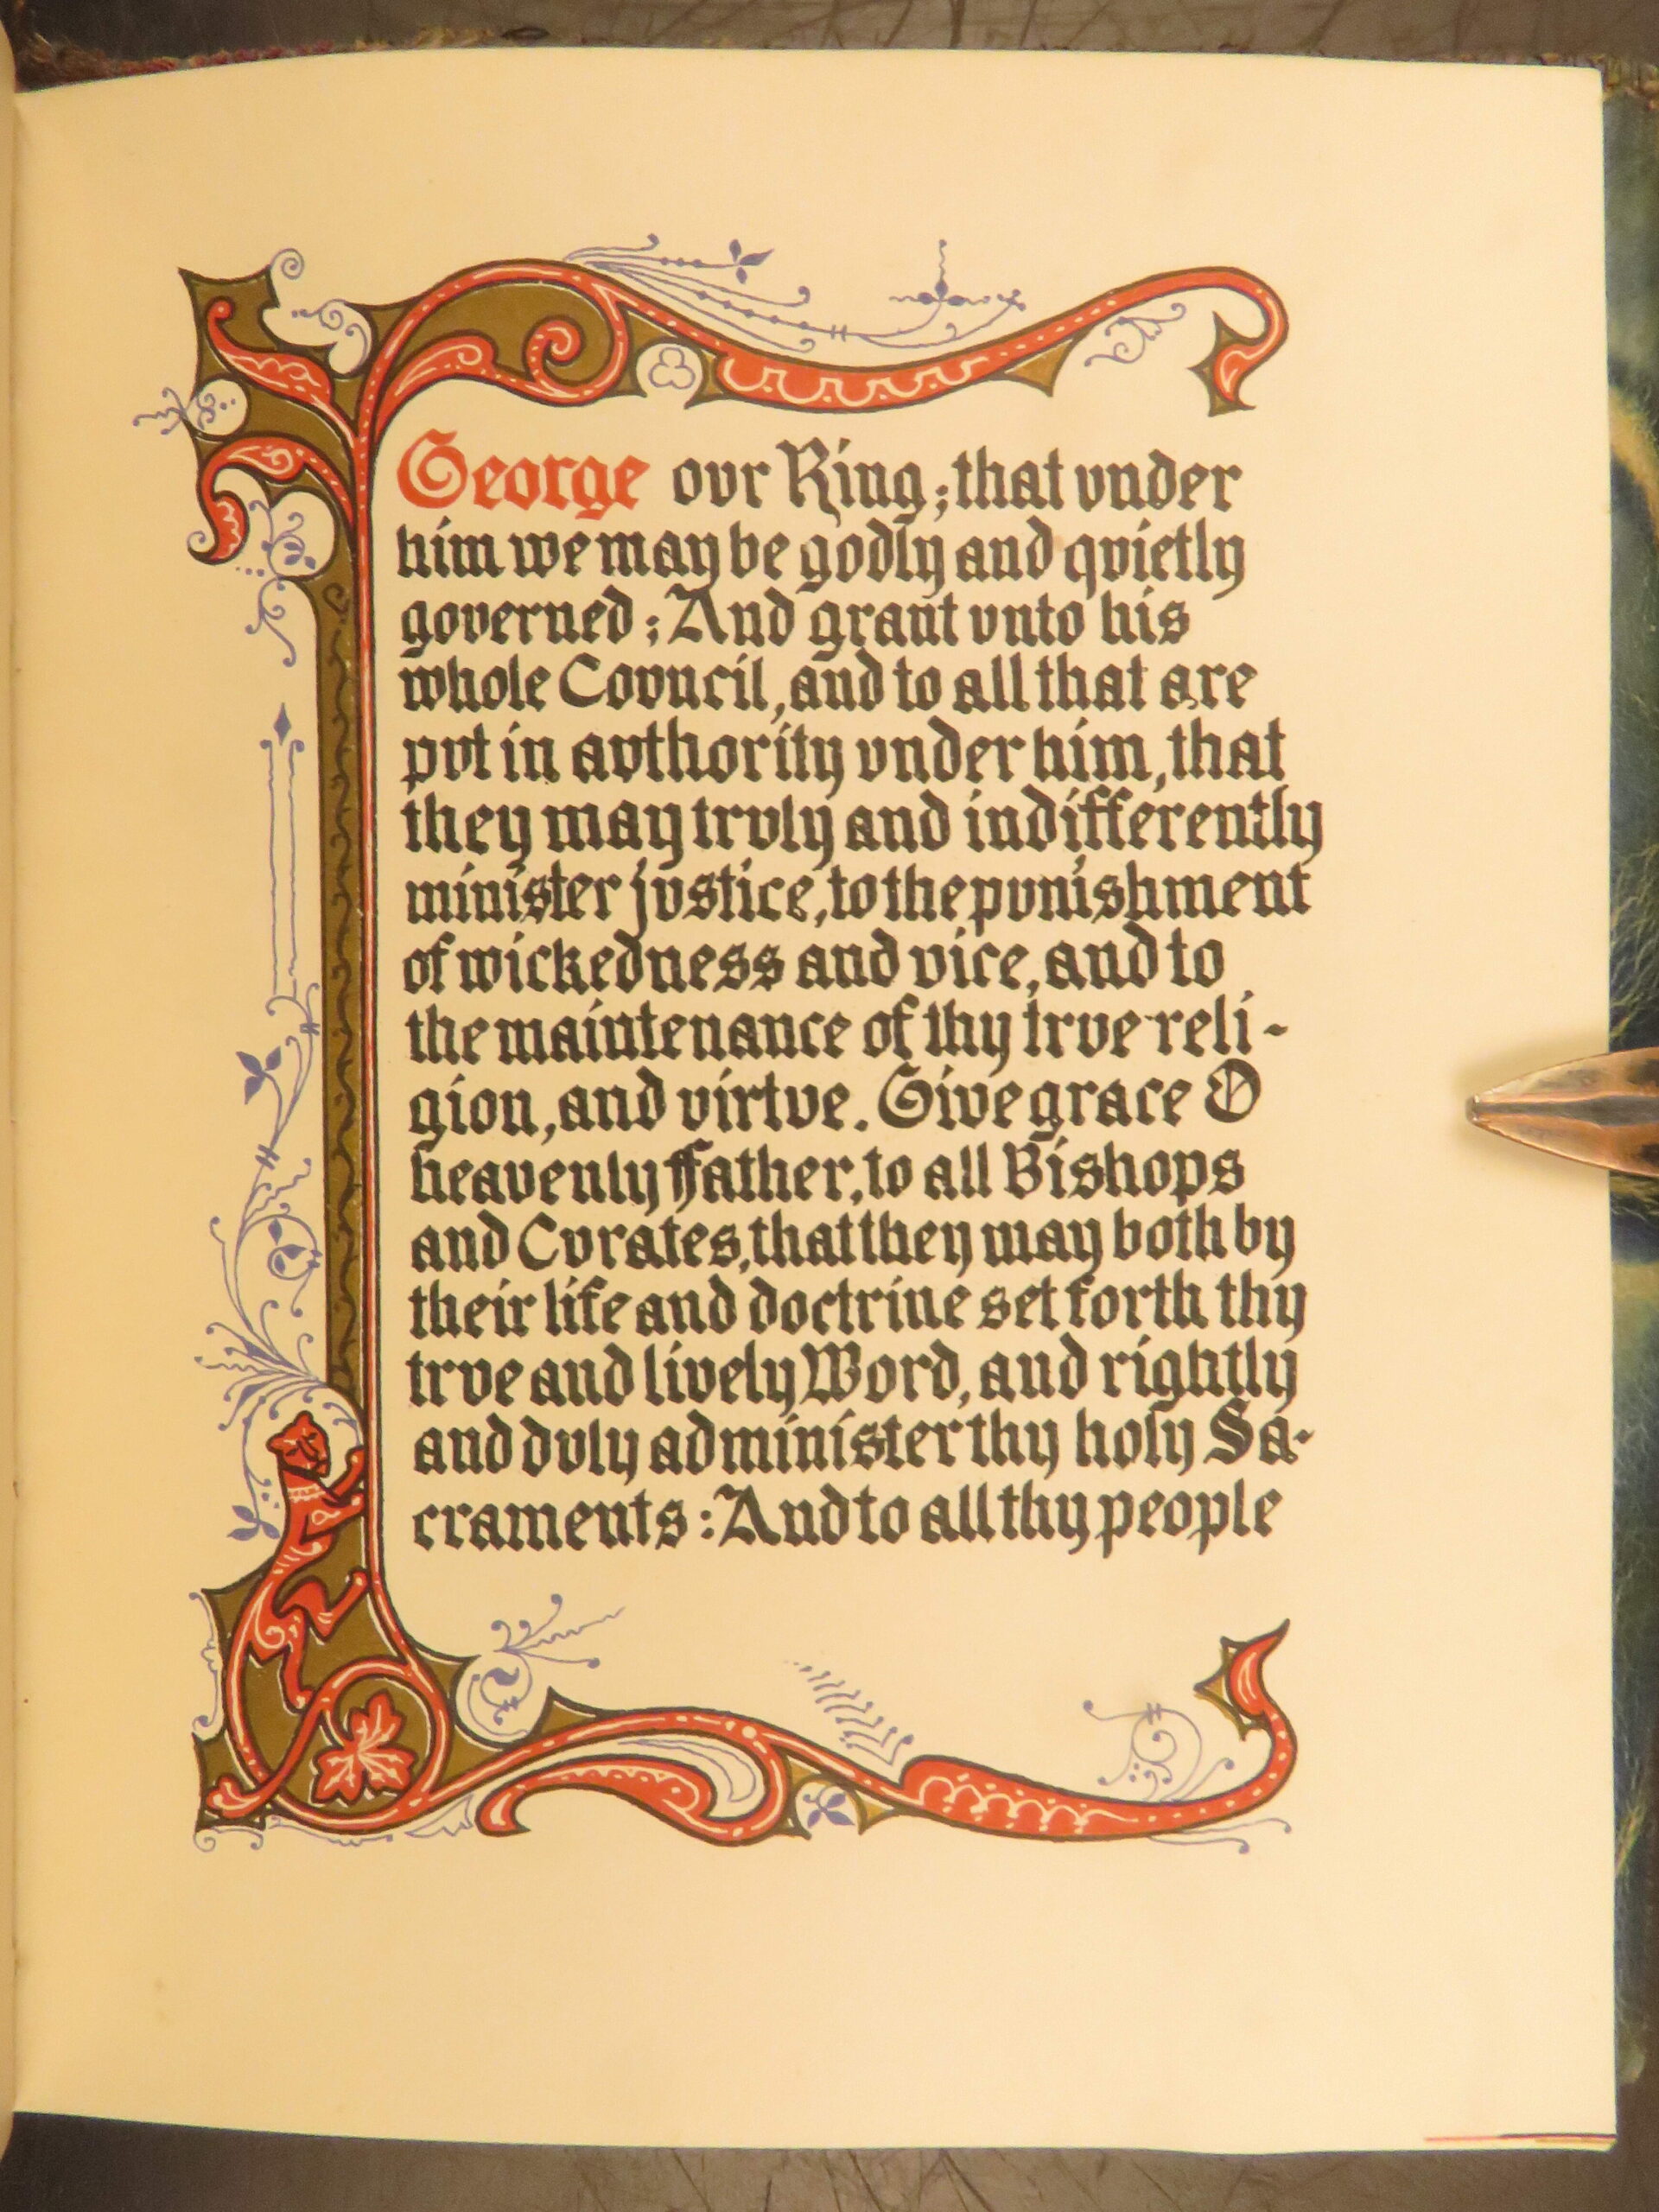 George ovr King; that vnder
him we may be godly and qvietly
governed; And grant vnto his
whole Covncil, and to all that are
pvt in avthority vnder him, that
they may trvly and indifferently
minister jvstice, to the pvnishment
of wickedness and vice, and to
the maintenance of thy trve reli-
gion, and virtve. Give grace O
heavenly ffather, to all Bishops
and Cvrates, that they may both by
their life and doctrine set forth thy
trve and lively Word, and rightly
and dvly administer thy holy Sa-
craments: And to all thy people